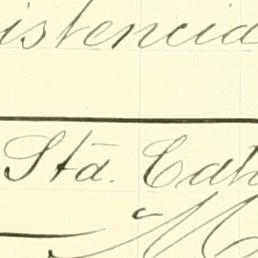 istencia
Sta. Cat
M